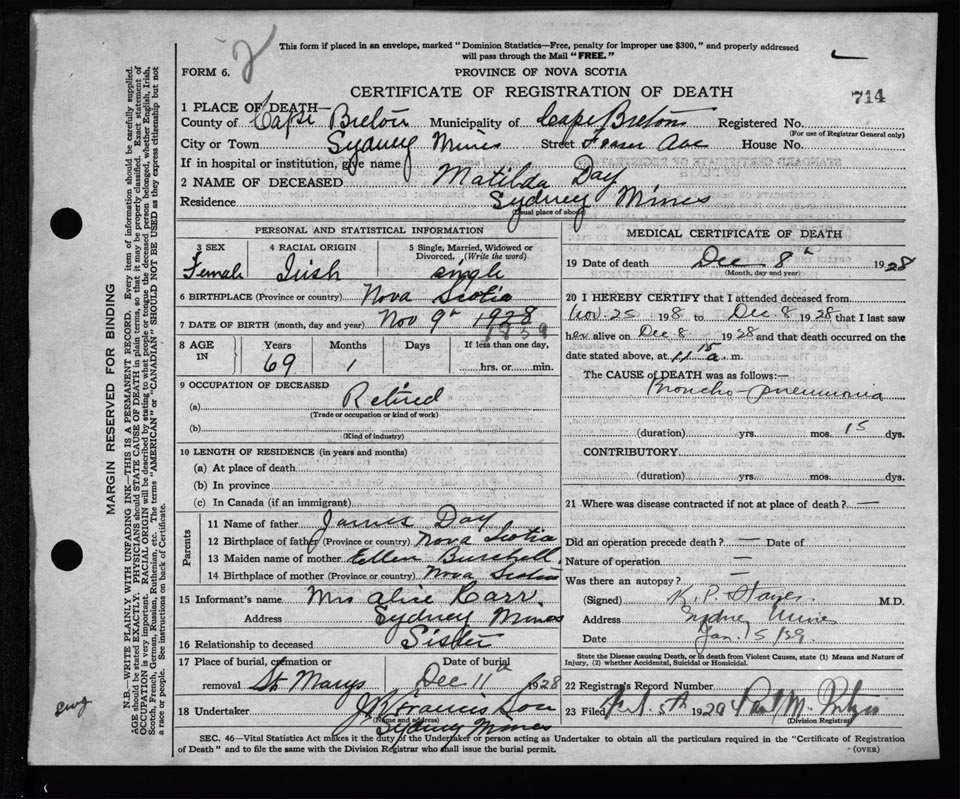 This form if placed in an envelope, marked "Dominion Statistics—Free, penalty for improper use $300," and properly addressed
will pass through the Mail "FREE."
FORM 6.
PROVINCE OF NOVA SCOTIA
CERTIFICATE OF REGISTRATION OF DEATH
714
1 PLACE OF DEATH—
County of Cape Breton Municipality of Cape Breton Registered No.
(For use of Registrar General only)
City or Town Sydney Mines Street Fraser Ave House No.
If in hospital or institution, give name
2 NAME OF DECEASED Matilda Day
Residence Sydney Mines
(Usual place of abode)
PERSONAL AND STATISTICAL INFORMATION
3 SEX Female
4 RACIAL ORIGIN Irish
5 Single, Married, Widowed or Divorced, (Write the word) Single
6 BIRTHPLACE (Province or country) Nova Scotia
7 DATE OF BIRTH (month, day and year) Nov 9th 1928
1859
8 AGE IN Years Months Days If less than one day,
69 1 hrs. or min.
9 OCCUPATION OF DECEASED
(a) Retired
(Trade or occupation or kind of work)
(b)
(Kind of industry)
10 LENGTH OF RESIDENCE (in years and months)
(a) At place of death
(b) In province
(c) In Canada (if an immigrant)
Parents
11 Name of father James Day
12 Birthplace of father (Province or country) Nova Scotia
13 Maiden name of mother Ellen Burchell
14 Birthplace of mother (Province or country) Nova Scotia
15 Informant's name Mrs Alice Carr
Address Sydney Mines
16 Relationship to deceased Sister
17 Place of burial, cremation or removal St Marys
Date of burial Dec 11th 1928
18 Undertaker Son
(Name and address)
Sydney Mines
MEDICAL CERTIFICATE OF DEATH
19 Date of death Dec 8th 1928
(Month, day and year)
20 I HEREBY CERTIFY that I attended deceased from
Nov. 25 198 to Dec 8 1928 that I last saw
her alive on Dec 8 1928 and that death occurred on the
date stated above, at 11 15 a. m.
The CAUSE OF DEATH was as follows:—
Broncho-pneumonia
(duration) yrs. mos. 15 dys.
CONTRIBUTORY
(duration) yrs. mos. dys.
21 Where was disease contracted if not at place of death? —
Did an operation precede death? — Date of
Nature of operation —
Was there an autopsy? —
(Signed) M.D.
Address Sydney Mines
Date Jan. 5/29.
State the Disease causing Death, or in death from Violent Causes, state (1) Means and Nature of
Injury, (2) whether Accidental, Suicidal or Homicidal.
22 Registrar's Record Number
23 Filed Feb. 5th 1929
(Division Registrar)
SEC. 46—Vital Statistics Act makes it the duty of the Undertaker or person acting as Undertaker to obtain all the particulars required in the "Certificate of Registration
of Death" and to file the same with the Division Registrar who shall issue the burial permit.
(OVER)
MARGIN RESERVED FOR BINDING
N.B.—WRITE PLAINLY WITH UNFADING INK—THIS IS A PERMANENT RECORD. Every item of information should be carefully supplied.
AGE should be stated EXACTLY. PHYSICIANS should STATE CAUSE OF DEATH in plain terms, so that it may be properly classified. Exact statement of
OCCUPATION is very important. RACIAL ORIGIN will be described by stating to what people or tongue the deceased person belonged, whether English, Irish,
Scotch, French, German, Russian, Ruthenian, etc. The terms "AMERICAN" or "CANADIAN" SHOULD NOT BE USED as they express citizenship but not
a race or people. See instructions on back of Certificate.